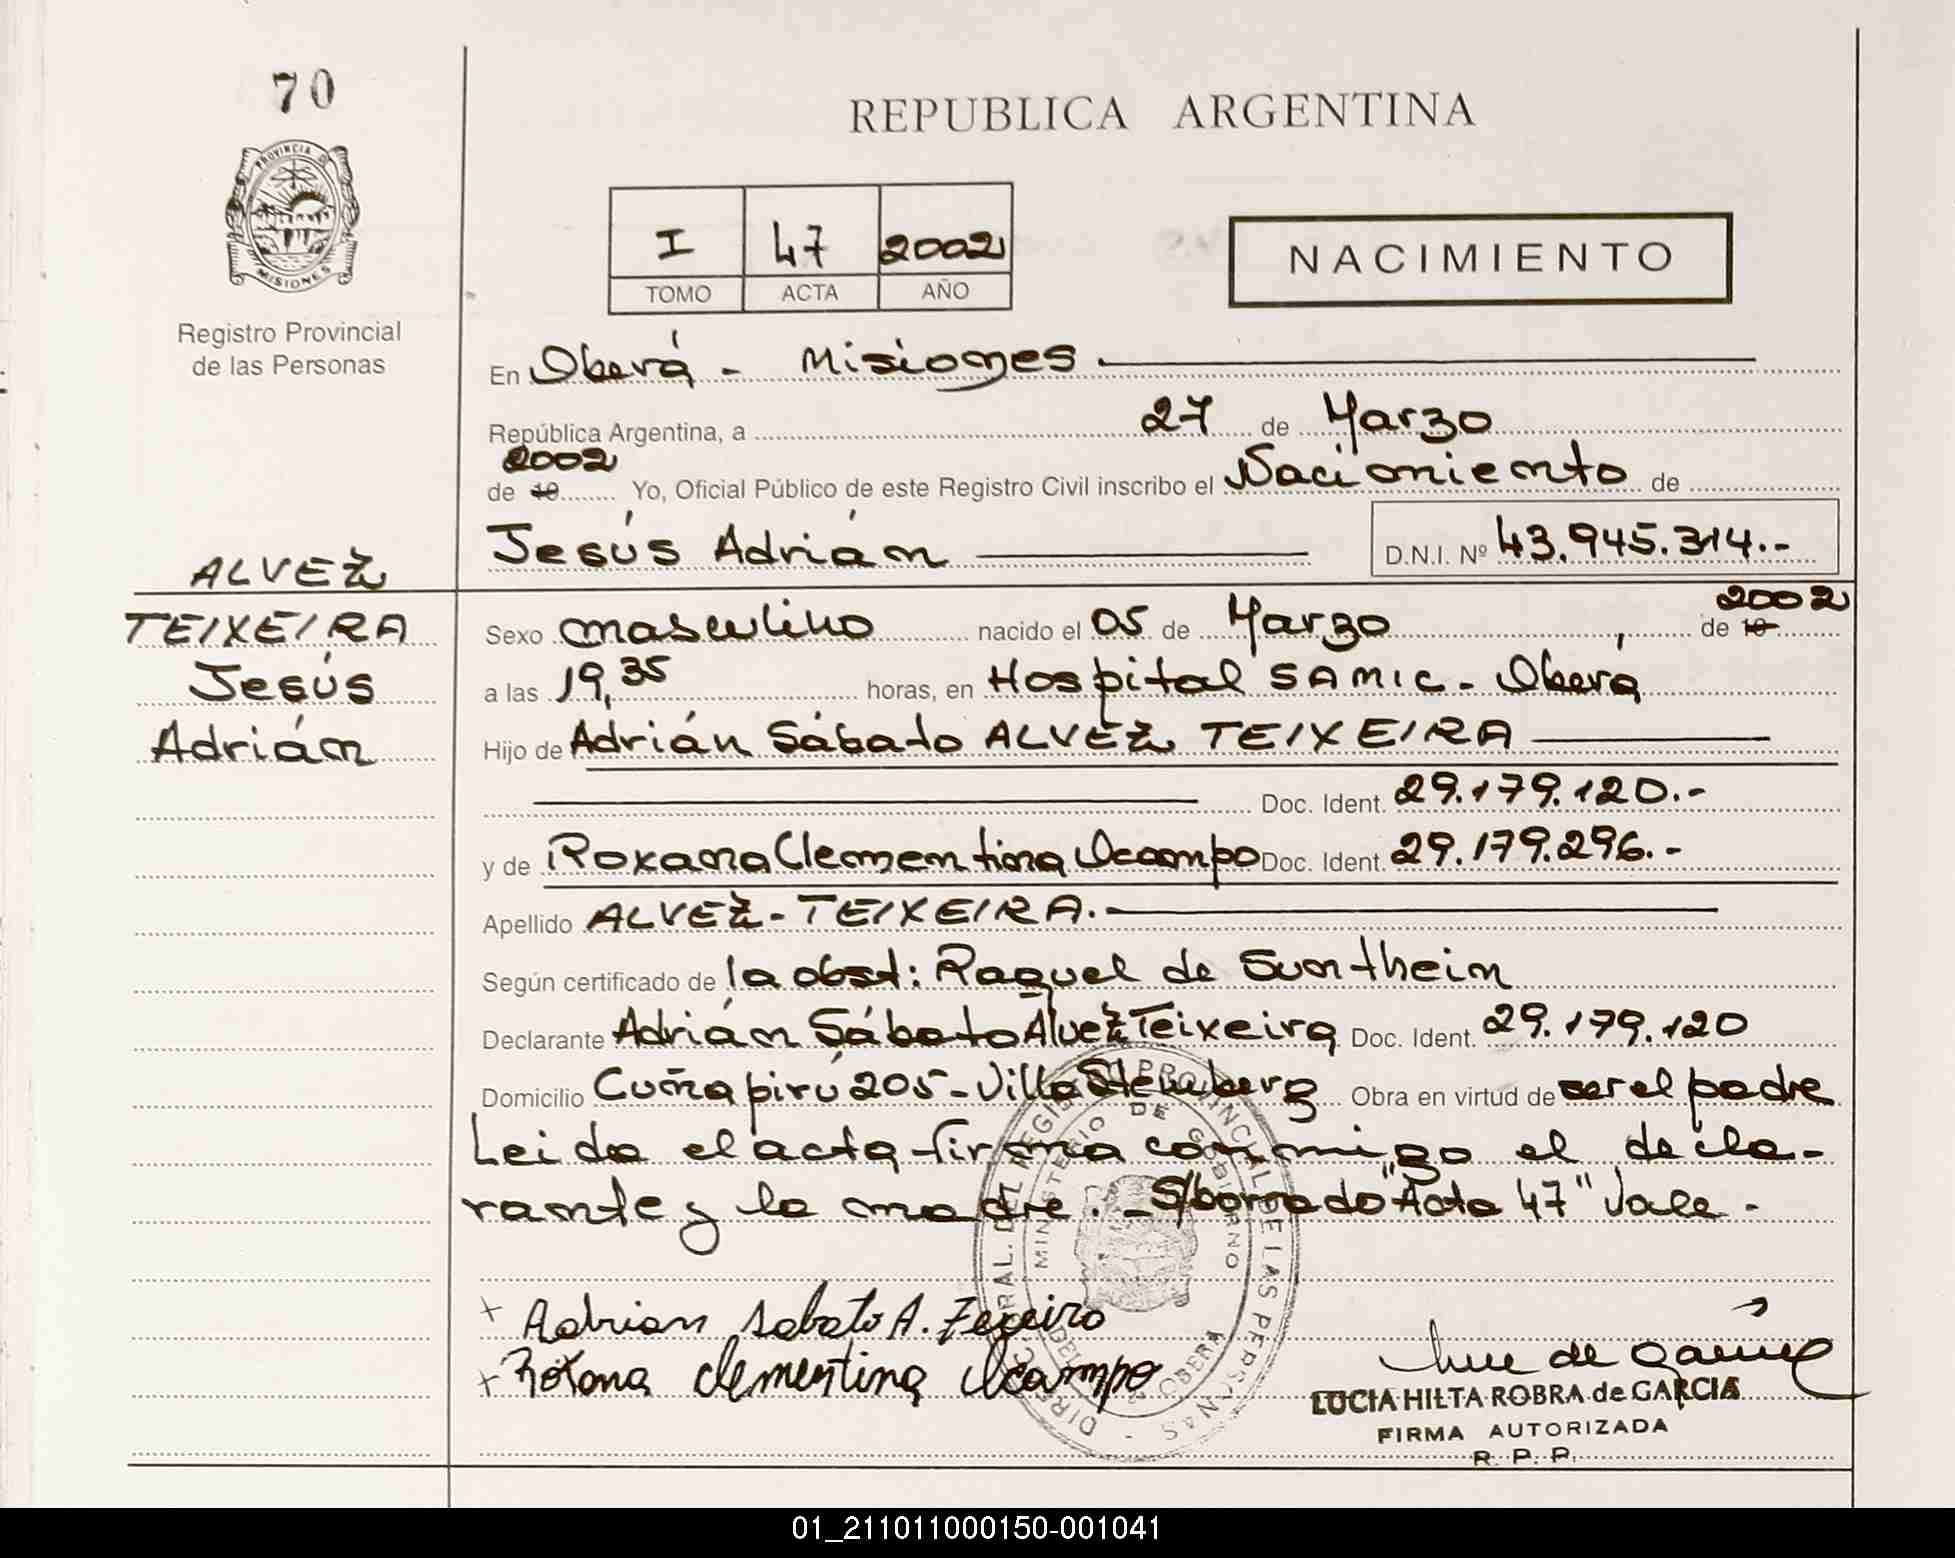 70
REPUBLICA ARGENTINA
PROVINCIA D
MISIONES
I 47 2002
TOMO ACTA AÑO
NACIMIENTO
Registro Provincial
de las Personas
En Oberá - Misiones
República Argentina, a 27 de Marzo
2002
de 19 Yo, Oficial Público de este Registro Civil inscribo el Nacimiento de
Jesús Adrián D.N.I. Nº 43.945.314.-
ALVEZ
TEIXEIRA
Jesús
Adrián
2002
Sexo masculino nacido el 05 de Marzo, de 19
a las 19,35 horas, en Hospital SAMIC - Oberá
Hijo de Adrián Sábato ALVEZ TEIXEIRA
Doc. Ident. 29.179.120.-
y de Roxana Clementina Ocampo Doc. Ident. 29.179.296.-
Apellido ALVEZ - TEIXEIRA.
Según certificado de la obst: Raquel de Suntheim
Declarante Adrián Sábato Alvez Teixeira Doc. Ident. 29.179.120
Domicilio Cuñapirú 205 - Villa Stemberg Obra en virtud de ser el padre
Leida el acta firma conmigo el decla-
rante y la madre. - S/borrado "Acta 47" Vale -
MINISTERIO DE GOBIERNO
OBERA
+ Adrian Sabato A. Texeira
+ Roxana Clementina Ocampo
LUCIA HILTA ROBRA de GARCIA
FIRMA AUTORIZADA
R. P. P.
01_211011000150-001041